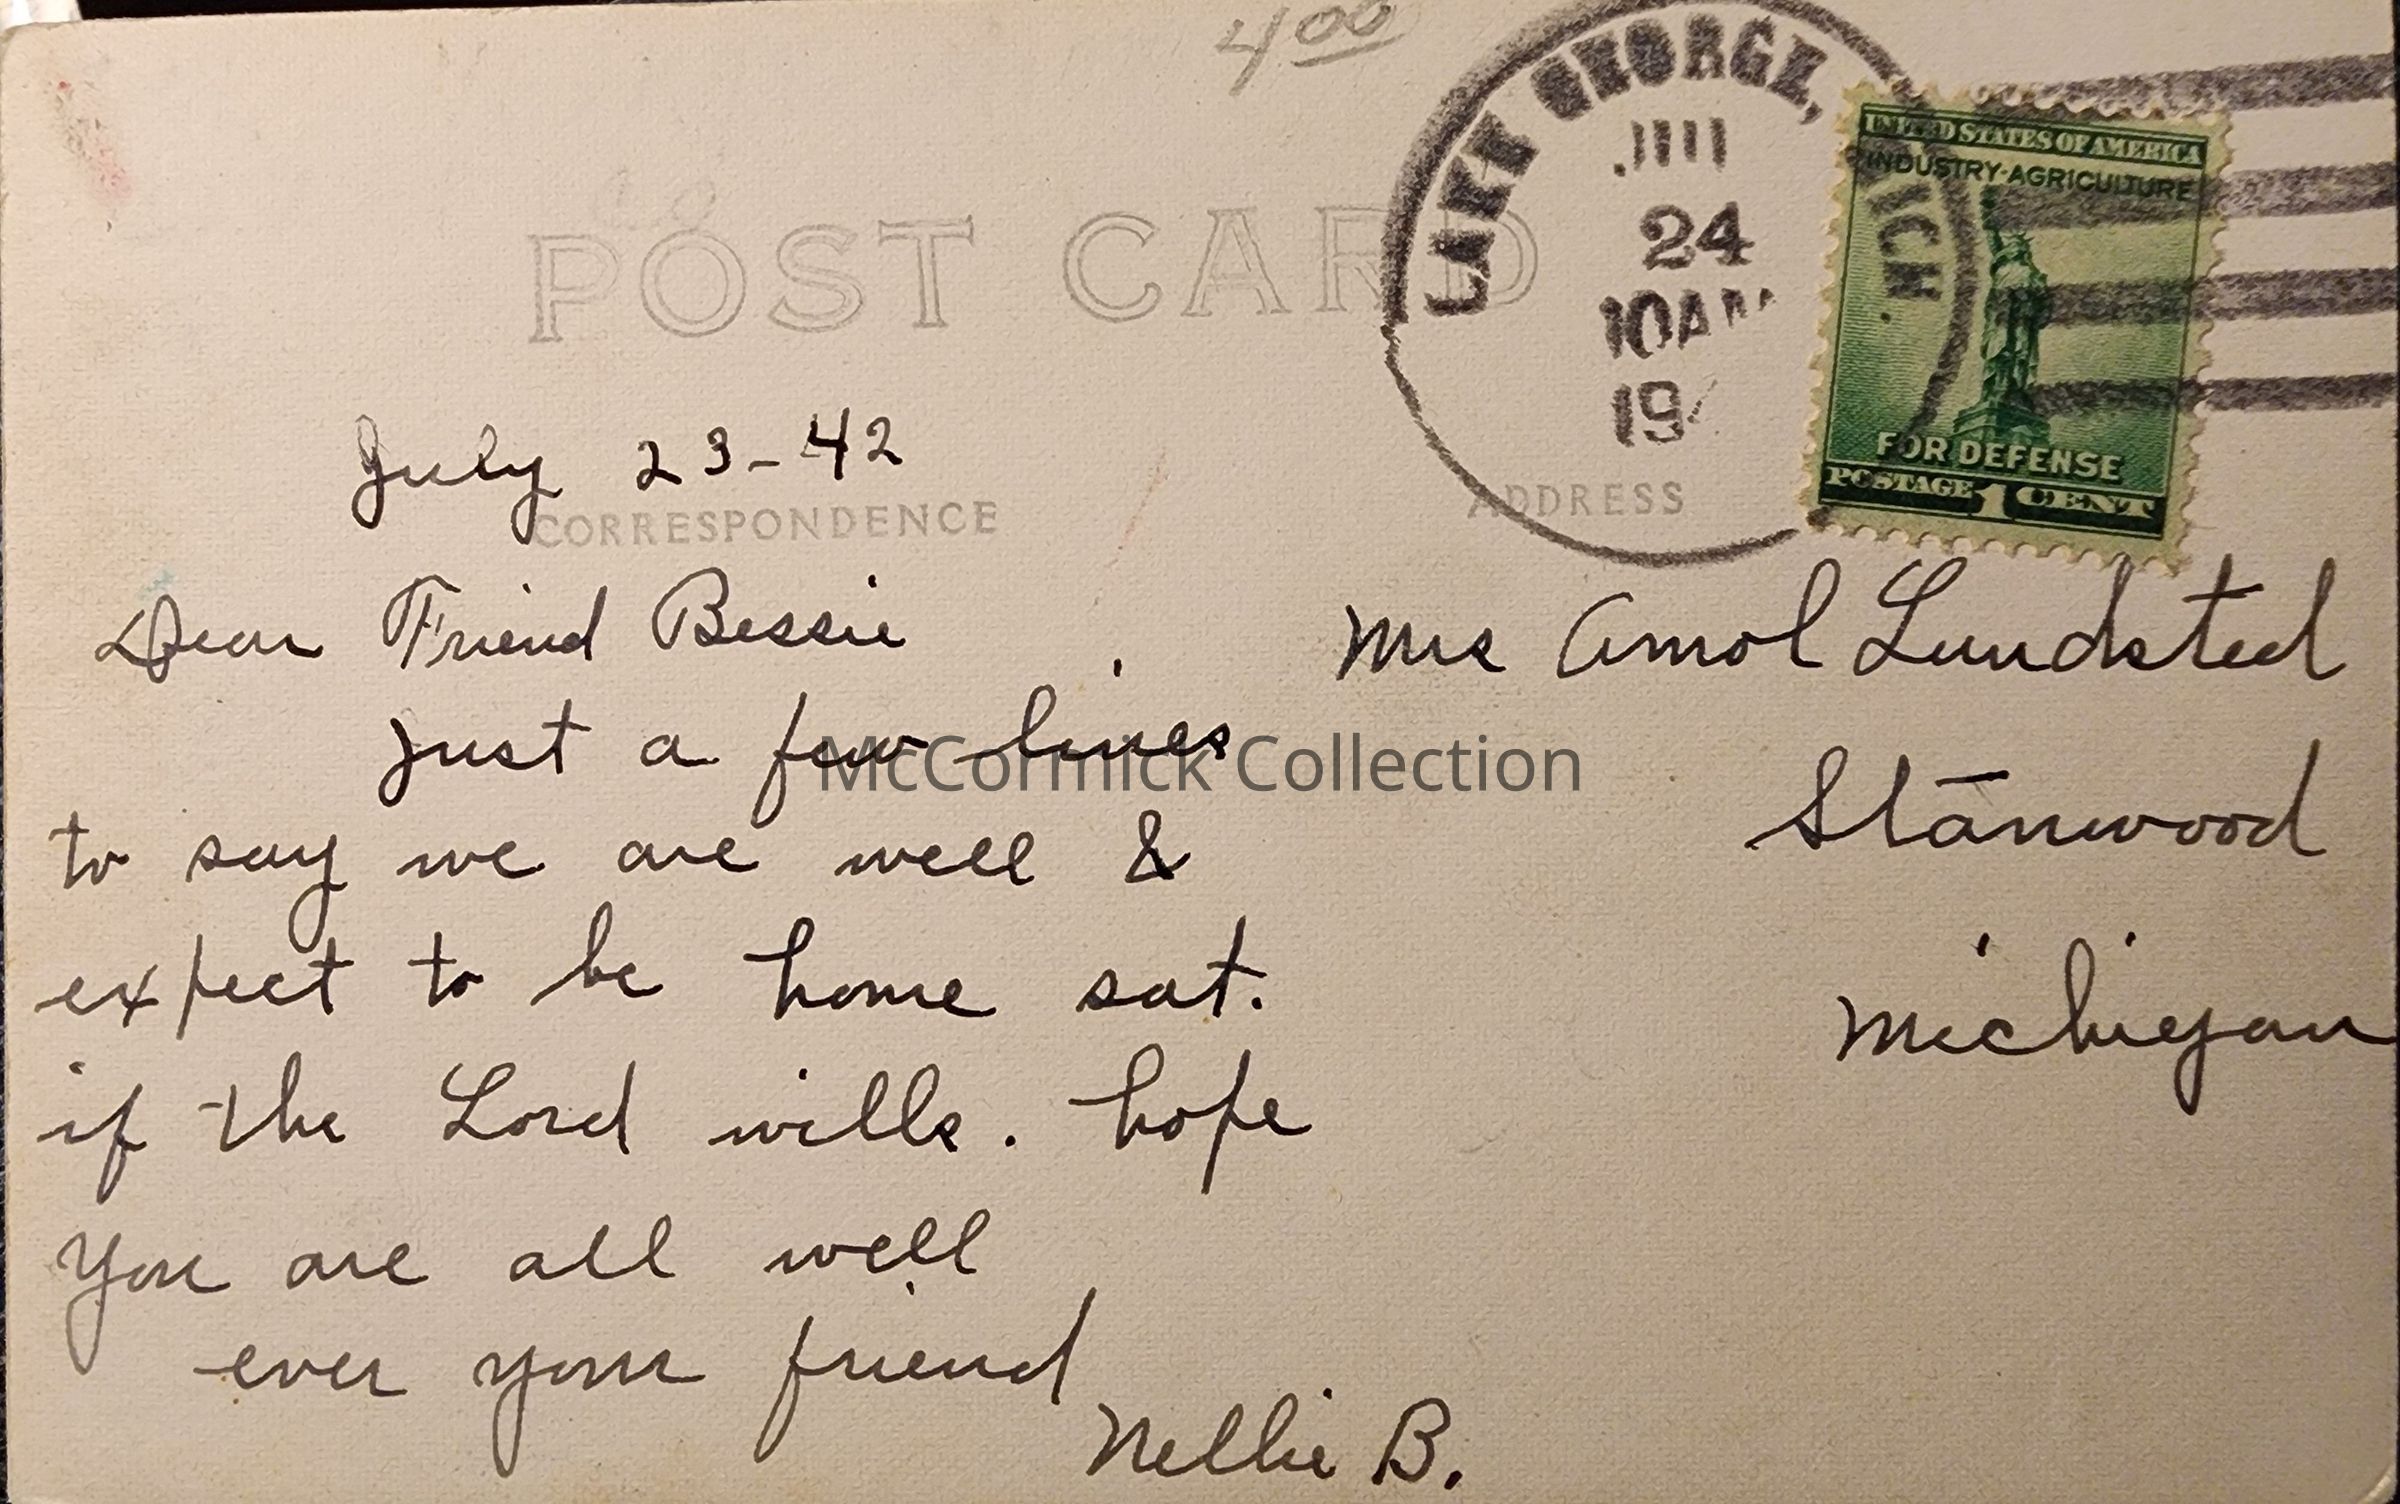 4 00
LAKE GEORGE, ICH.
24
10AM
19
UNITED STATES OF AMERICA
INDUSTRY·AGRICULTURE
FOR DEFENSE
POSTAGE 1 CENT
POST CARD
July 23-42
CORRESPONDENCE
ADDRESS
Dear Friend Bessie
just a few lines
to say we are well &
expect to be home sat.
if the Lord wills. hope
you are all well
ever your friend
Nellie B.
Mrs Arnol Lundsted
Stanwood
Michigan
McCormick Collection